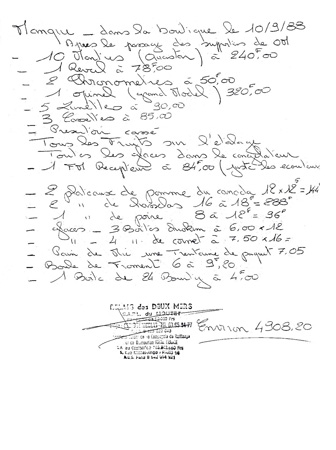 Manque - dans la boutique le 10/9/83
Apres le passage des supplis de vol
- 10 Montres (Quaston) à 240F00
- 1 Reveil à 78F00
- 2 Chronometres à 50F00
- 1 opinel (grand Model) 320F00
- 5 Lunettes à 30,00
- 3 Cassettes à 85.00
- Presentoir cassé
Tous les Fruits sur l'étalage
Toutes les glaces dans le congelateur
- 1 Recepteur à 84F00 (juste les ecouteurs
- 2 Plateaux de pomme du canada 12 x 12F = 144
- 2 " de Chasselas 16 à 18F = 288F
- 1 " de poire 8 à 12F = 96F
- glaces - 3 Boites à 6,00 x 12
- " - 4 " de cornet à 7.50 x 16 =
- Pain de Mie une Trentaine de paquet 7.05
- Boule de Froment 6 à 9,20
- 1 Boite de 24 Bounty à 4F00
RELAIS des DEUX MERS
Environ 4908.20